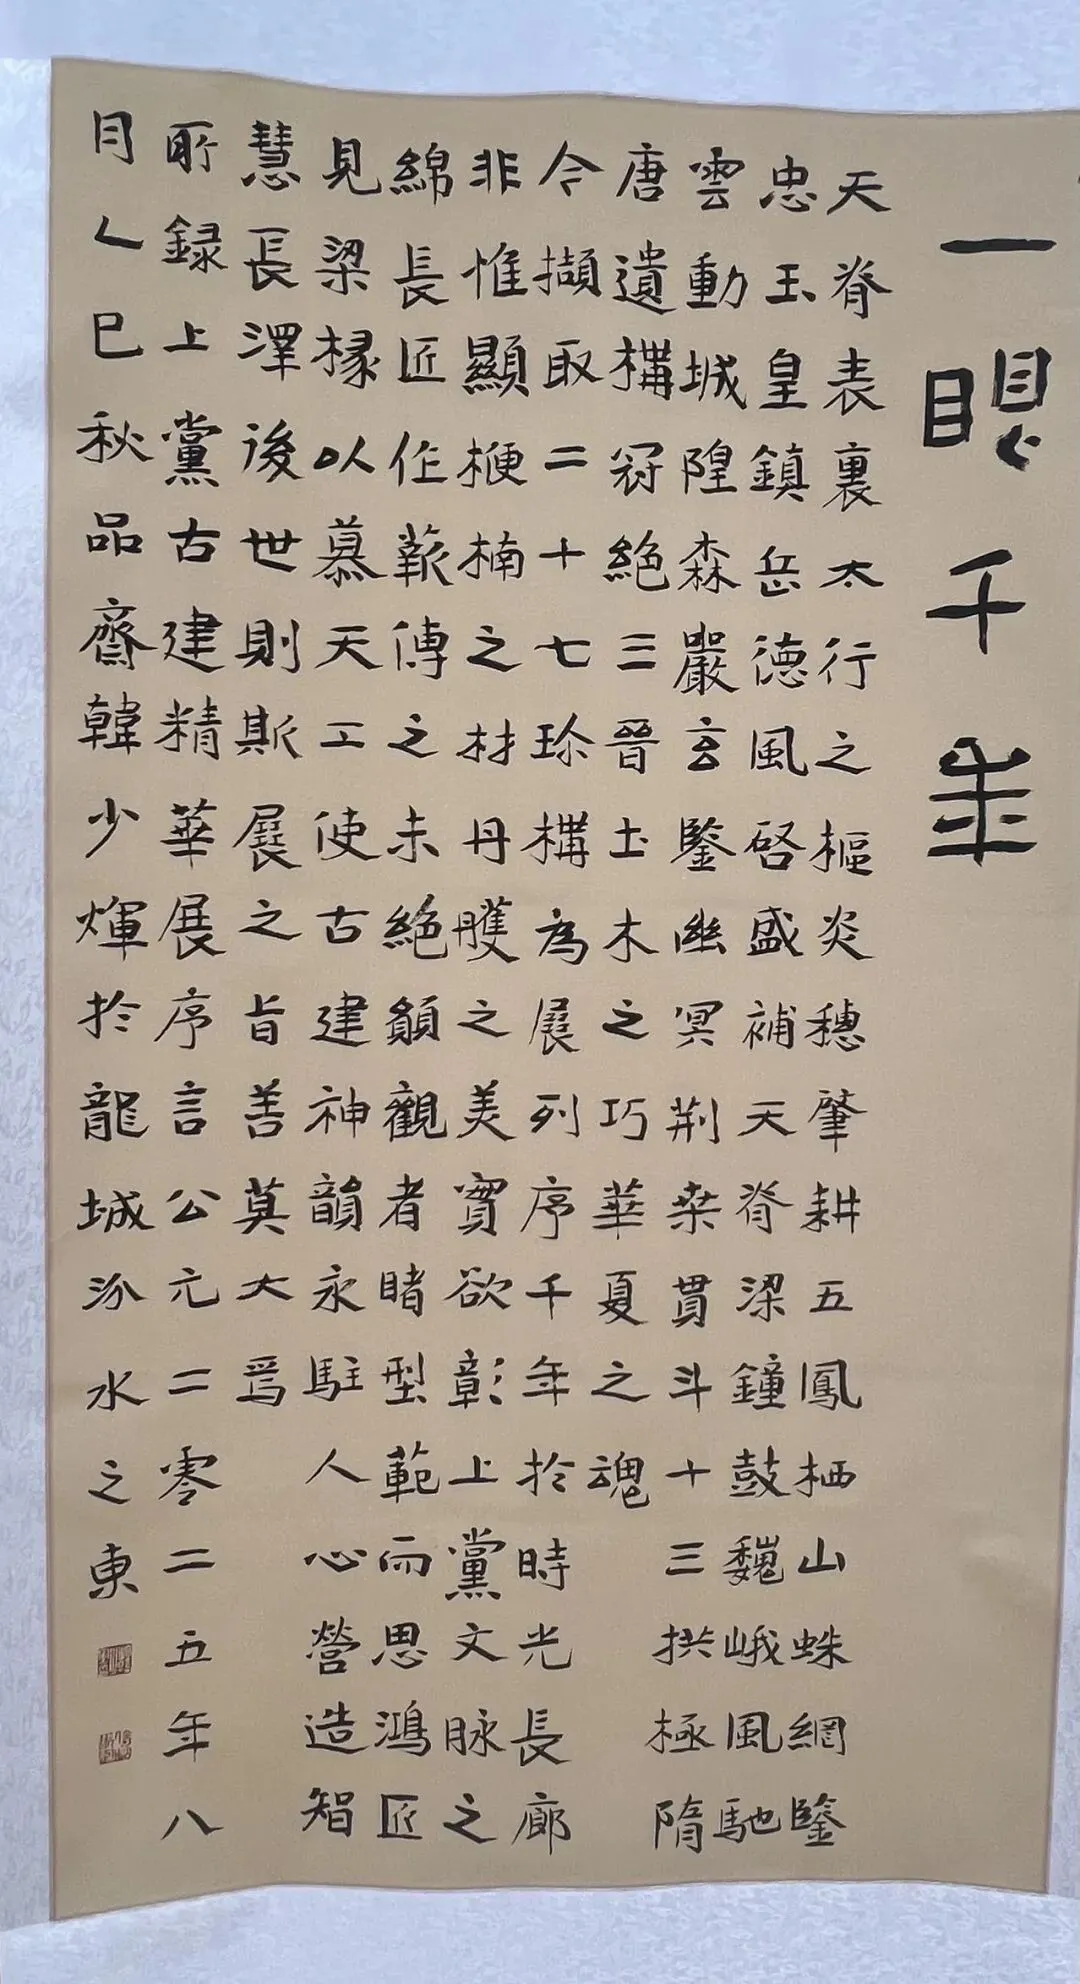 一眼千年
天脊表裏太行之樞炎穗肇耕五鳳栖山蛛網鑒
忠玉皇鎮岳德風啓盛補天脊梁鐘鼓巍峨風馳
雲動城隍森嚴玄鑒幽冥荆桒貫斗十三拱極隋
唐遺構冠絶三晉土木之巧華夏之魂
今擷取二十七珍構為展列序千年於時光長廊
非惟顯楩楠之材丹雘之美實欲彰上黨文脉之
綿長匠作蓺傳之未絶願觀者睹型範而思鴻匠
見梁椽以慕天工使古建神韻永駐人心營造智
慧長澤後世則斯展之旨善莫大焉
所録上黨古建精華展序言公元二零二五年八
月乙巳秋品齋韓少煇於龍城汾水之東